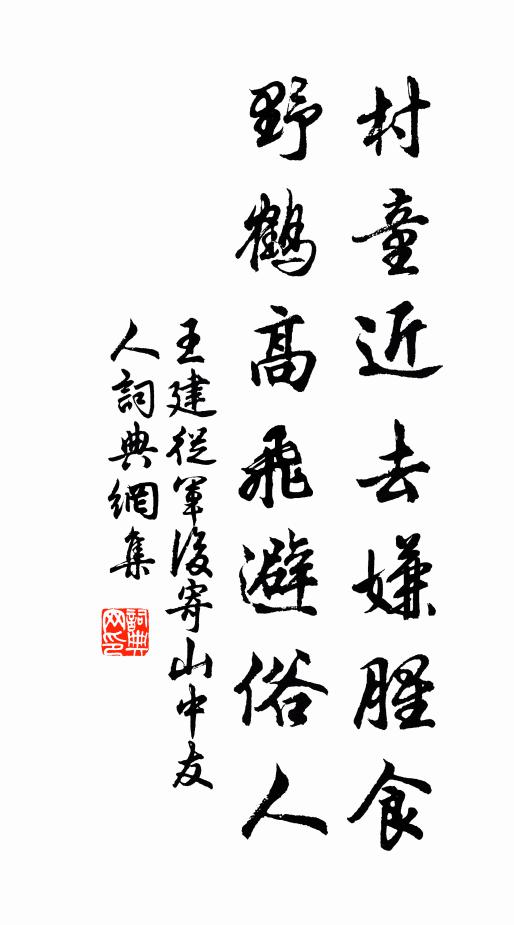 村童近去嫌腥食
野鶴高飛避俗人
王建從軍後寄山中友
人詞典網集
詞典網印